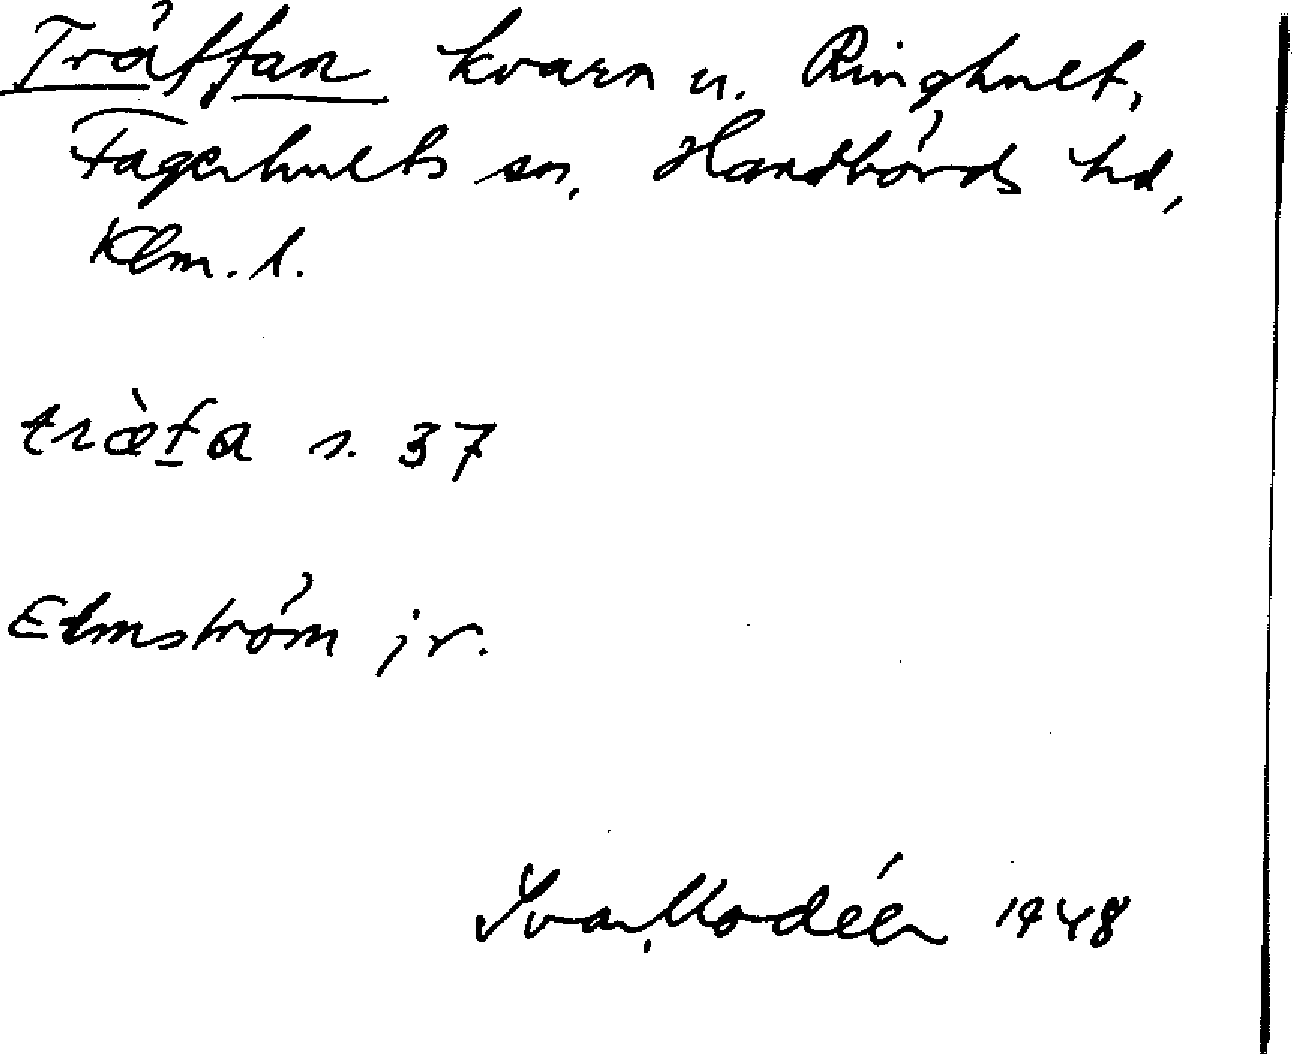 Träffan kvarn u. Ringhult,
Fagerhults sn, Handbörds hd,
Klm. l.
træ̀f̲a s. 37
Elmström jr.
Ivar Modéer 1948